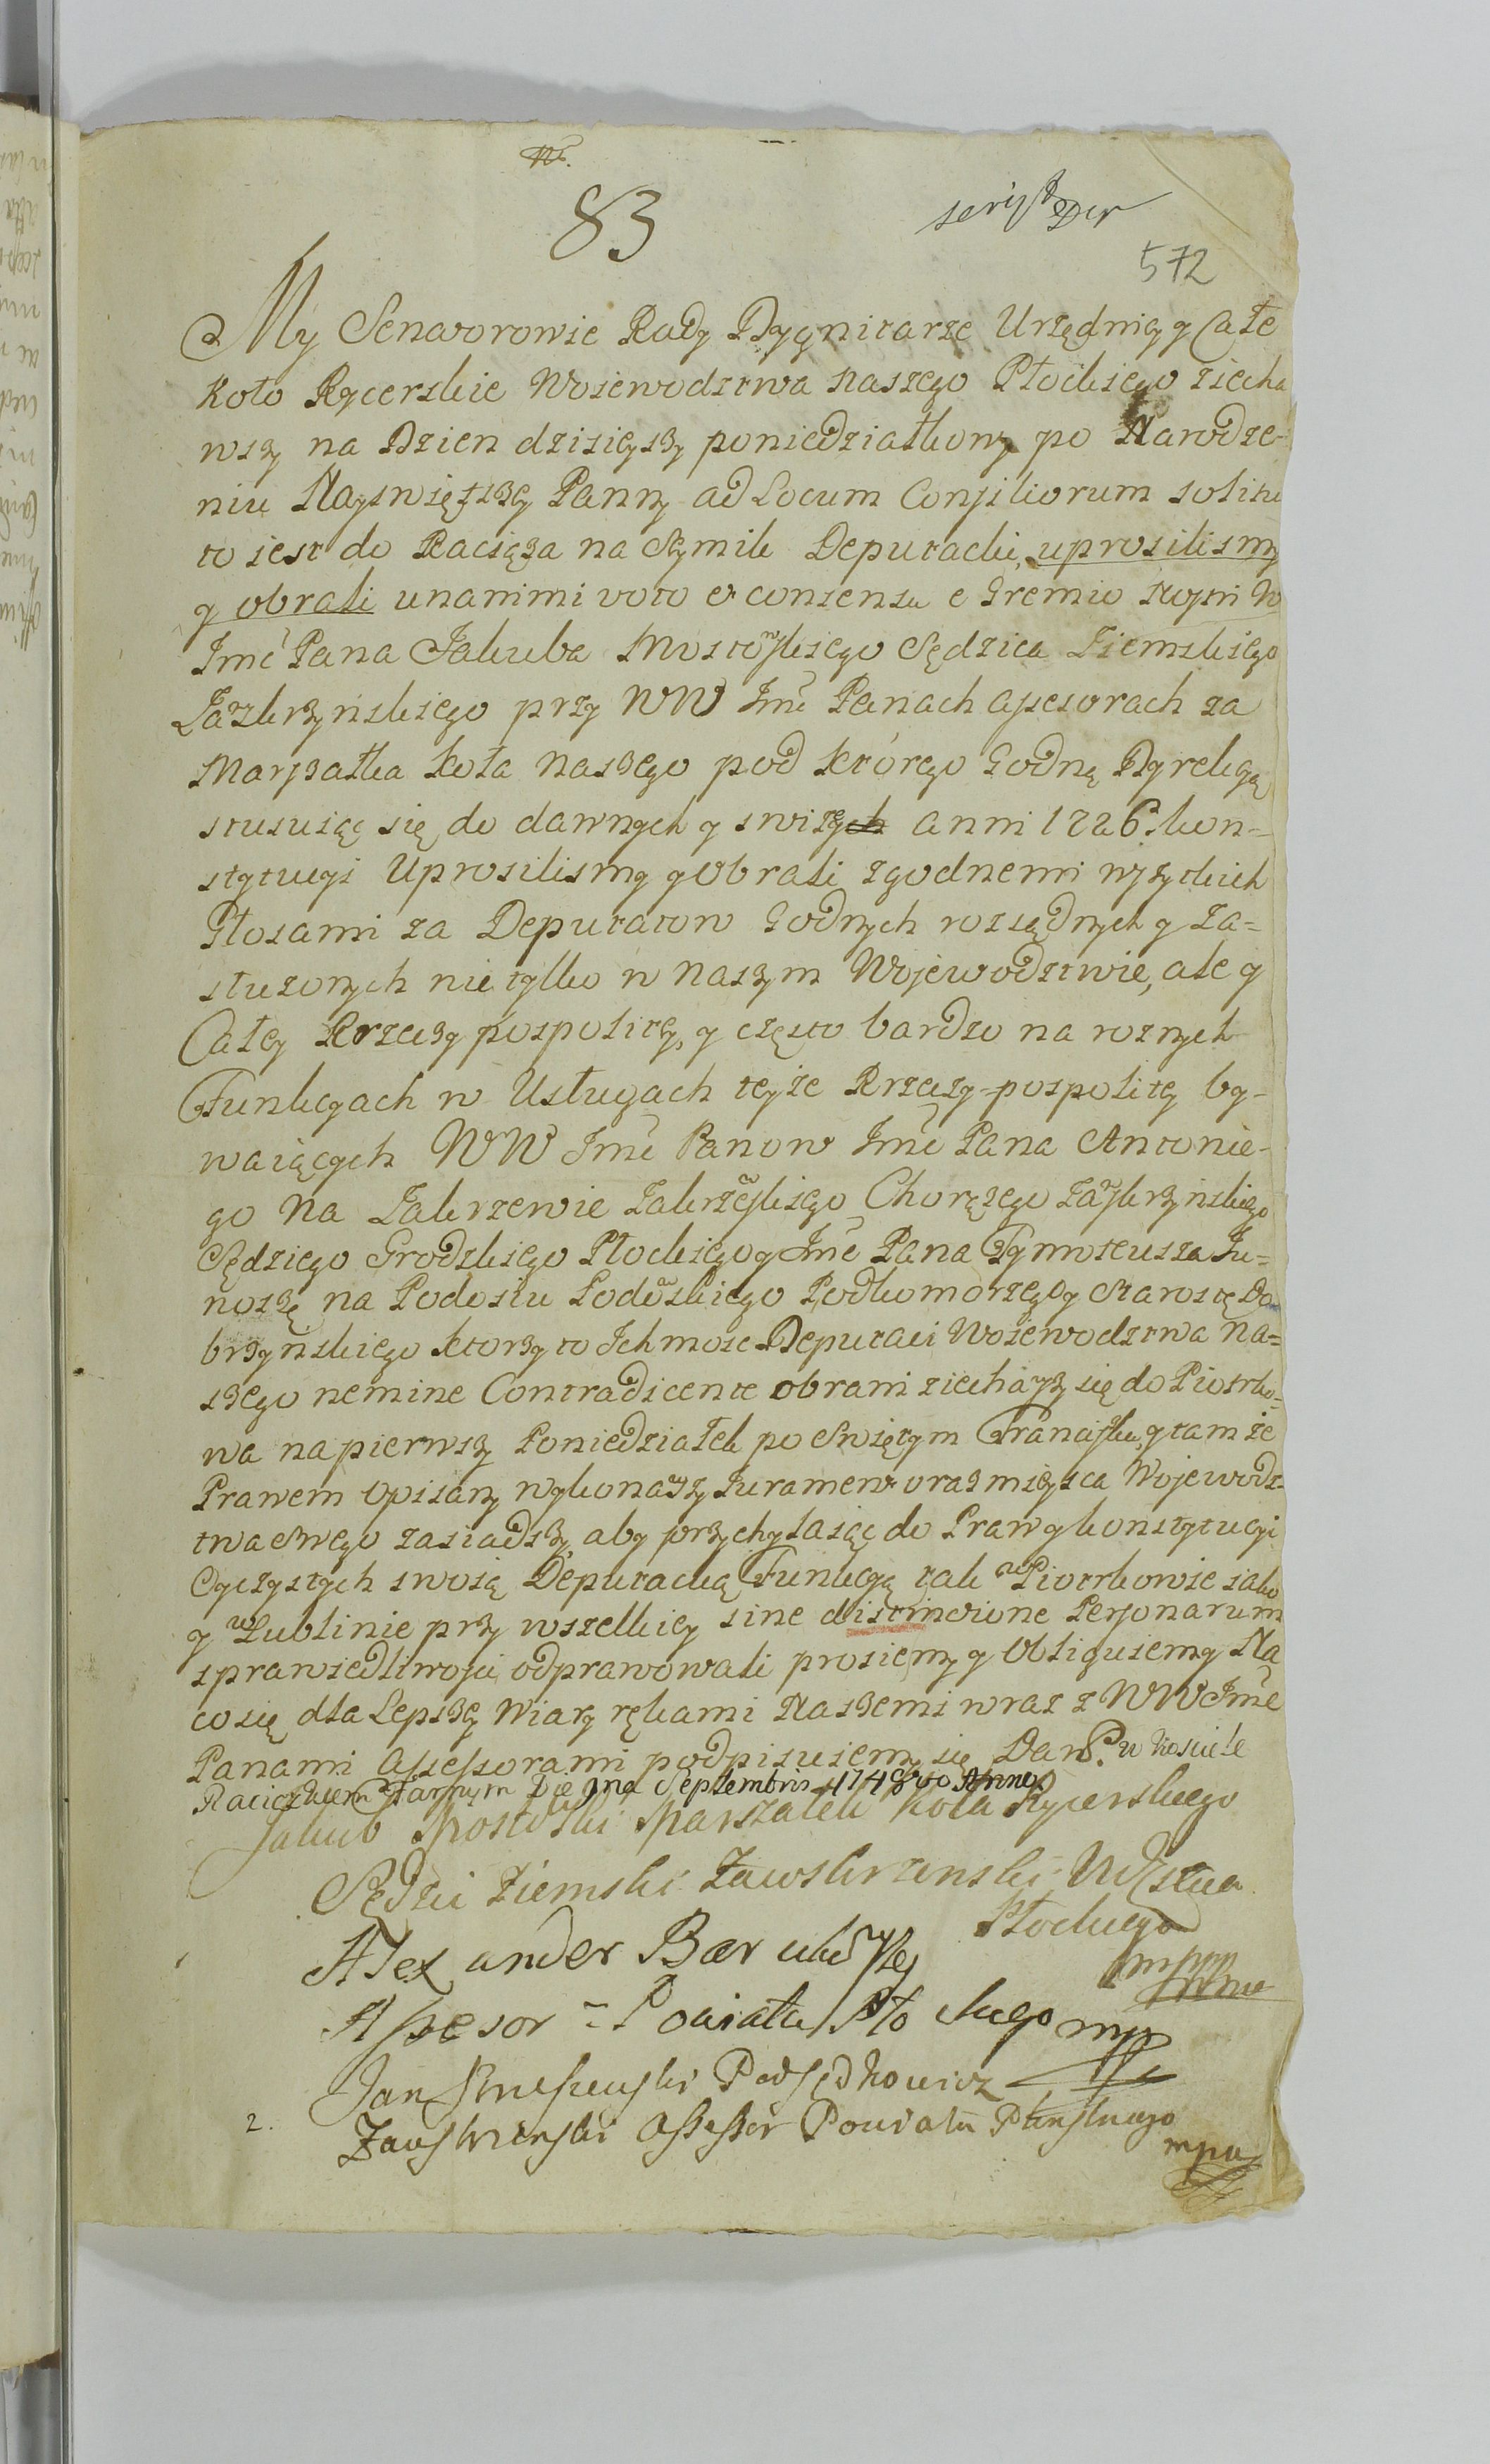 Nr.
83
script Der
572
My Senatorowie Rady Dygnitarze Urzędnicy y Całe
Koło Rycerskie Wojewodztwa Naszego Płockiego ziecha
wszy na Dzien dzisieyszy poniedziałkowy po Narodze-
niu Nayswiętszey Panny ad Locum Consiliorum solitu
to iest do Raciąża na Seymik Deputacki, uprosilismy
y obrali unanimi voto et consensu e Gremio Nostri W
Jmć Pana Jakuba Mostowskiego Sędzica Ziemskiego
Zawskrzyńskiego przy WW Jmć Panach assesorach za
Marszałka Koła Naszego pod ktorego Godną Dyrekcyą
stusuiąc się do dawnych y swizych anni 1726. kon-
stytucyi Uprosilismy y Obrali zgodnemi wszytkich
Głosami za Deputatow Godnych rozsądnych y za-
służonych nie tylko w Naszym Wojewodztwie, ale y
Całey Rrzeczy pospolitey, y często bardzo na roznych
Funkcyach w Usługach teyże Rrzeczy-pospolitey by-
waiących WW Jmć Panow Jmć Pana Antonie-
go Na Zakrzewie Zakrzewskiego Chorążego Zawskrzyńskiego
Sędziego Grodzkiego Płockiego y Jmć Pana Tymoteusza Ju-
noszę na Podosiu Podoskiego Podkomorzego y Starostę Do
brzynskiego ktorzy to Ichmosc Deputaci Wojewodztwa Na-
szego nemine Contradicente obrani ziechawszy się do Piotrko-
wa na pierwszy Poniedziałek po Swiętym Franciszku, y tam że
Prawem Opisany wykonawszy Jurament oraz mieysca Wojewodz-
twa Swego zasiadszy, aby przychylaiąc do Praw y konstytucyi
Oyczystych swoią Deputacką Funkcyą tak w Piotrkowie iako
y w Lublinie przy wszelkiey sine distinctione Personarum
sprawiedliwosci odprawowali prosiemy y Obliguiemy Na
co się dla Lepszey Wiary rękami Naszemi wraz z WW Jmć
Panami Assessorami podpisuiemy się Dan P. w kosciele
Raciązkiem Farnym Die 9na Septembris 1748vo Anno
Jakub Mostowski Marszałek Koła Rycerskiego
Sędzic Ziemski Zawskrzenski Wdztwa
Płockiego
mppp
Alexander Bar
Assesor Powiatu Płockiego mpp
Jan Podsędkowicz
2. Zawskrzenski Assessor Powiatu Płonskiego
mpp